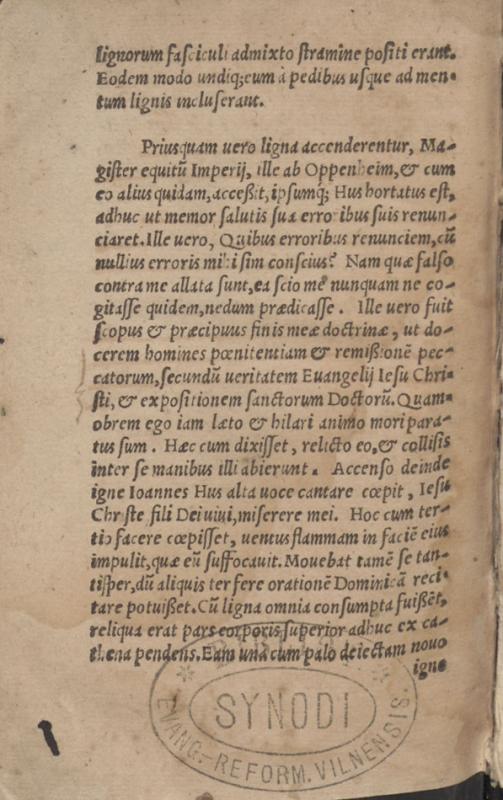 lignorum fasciculi admixto stramine positi erant.
Eodem modo undiq;eum à pedibus usque ad men-
tum lignis incluserant.
Priusquam uero ligna accenderentur, Ma-
gister equitũ Imperij, ille ab Oppenheim,& cum
eo alius quidam, acceßit, ipsumq; Hus hortatus est,
adhuc ut memor salutis suæ erroribus suis renun-
ciaret. Ille uero, Quibus erroribus renunciem, cũ
nullius erroris mihi sim conscius? Nam quæ falso
contra me allata sunt, ea scio me nunquam ne co-
gitasse quidem, nedum prædicasse. Ille uero fuit
scopus & præcipuus finis meæ doctrinæ, ut do-
cerem homines pœnitentiam & remißionẽ pec-
catorum, secundũ ueritatem Euangelij Iesu Chri-
sti, & expositionem sanctorum Doctorũ. Quam-
obrem ego iam læto & hilari animo mori para-
tus sum. Hæc cum dixisset, relicto eo, & collisis
inter se manibus illi abierunt. Accenso deinde
igne Ioannes Hus alta uoce cantare cœpit, Iesu
Christe fili Dei uiui, miserere mei. Hoc cum ter-
tio facere cœpisset, uentus flammam in faciẽ eius
impulit, quæ eũ suffocauit. Mouebat tamẽ se tan-
tisper, dũ aliquis ter fere orationẽ Dominicã reci-
tare potuißet. Cũ ligna omnia consumpta fuißẽt,
reliqua erat pars corporis superior adhuc ex ca-
thena pendens. Eam una cum palo deiectam nouo
igne
SYNODI
EVANG.-REFORM. VILNENSIS.